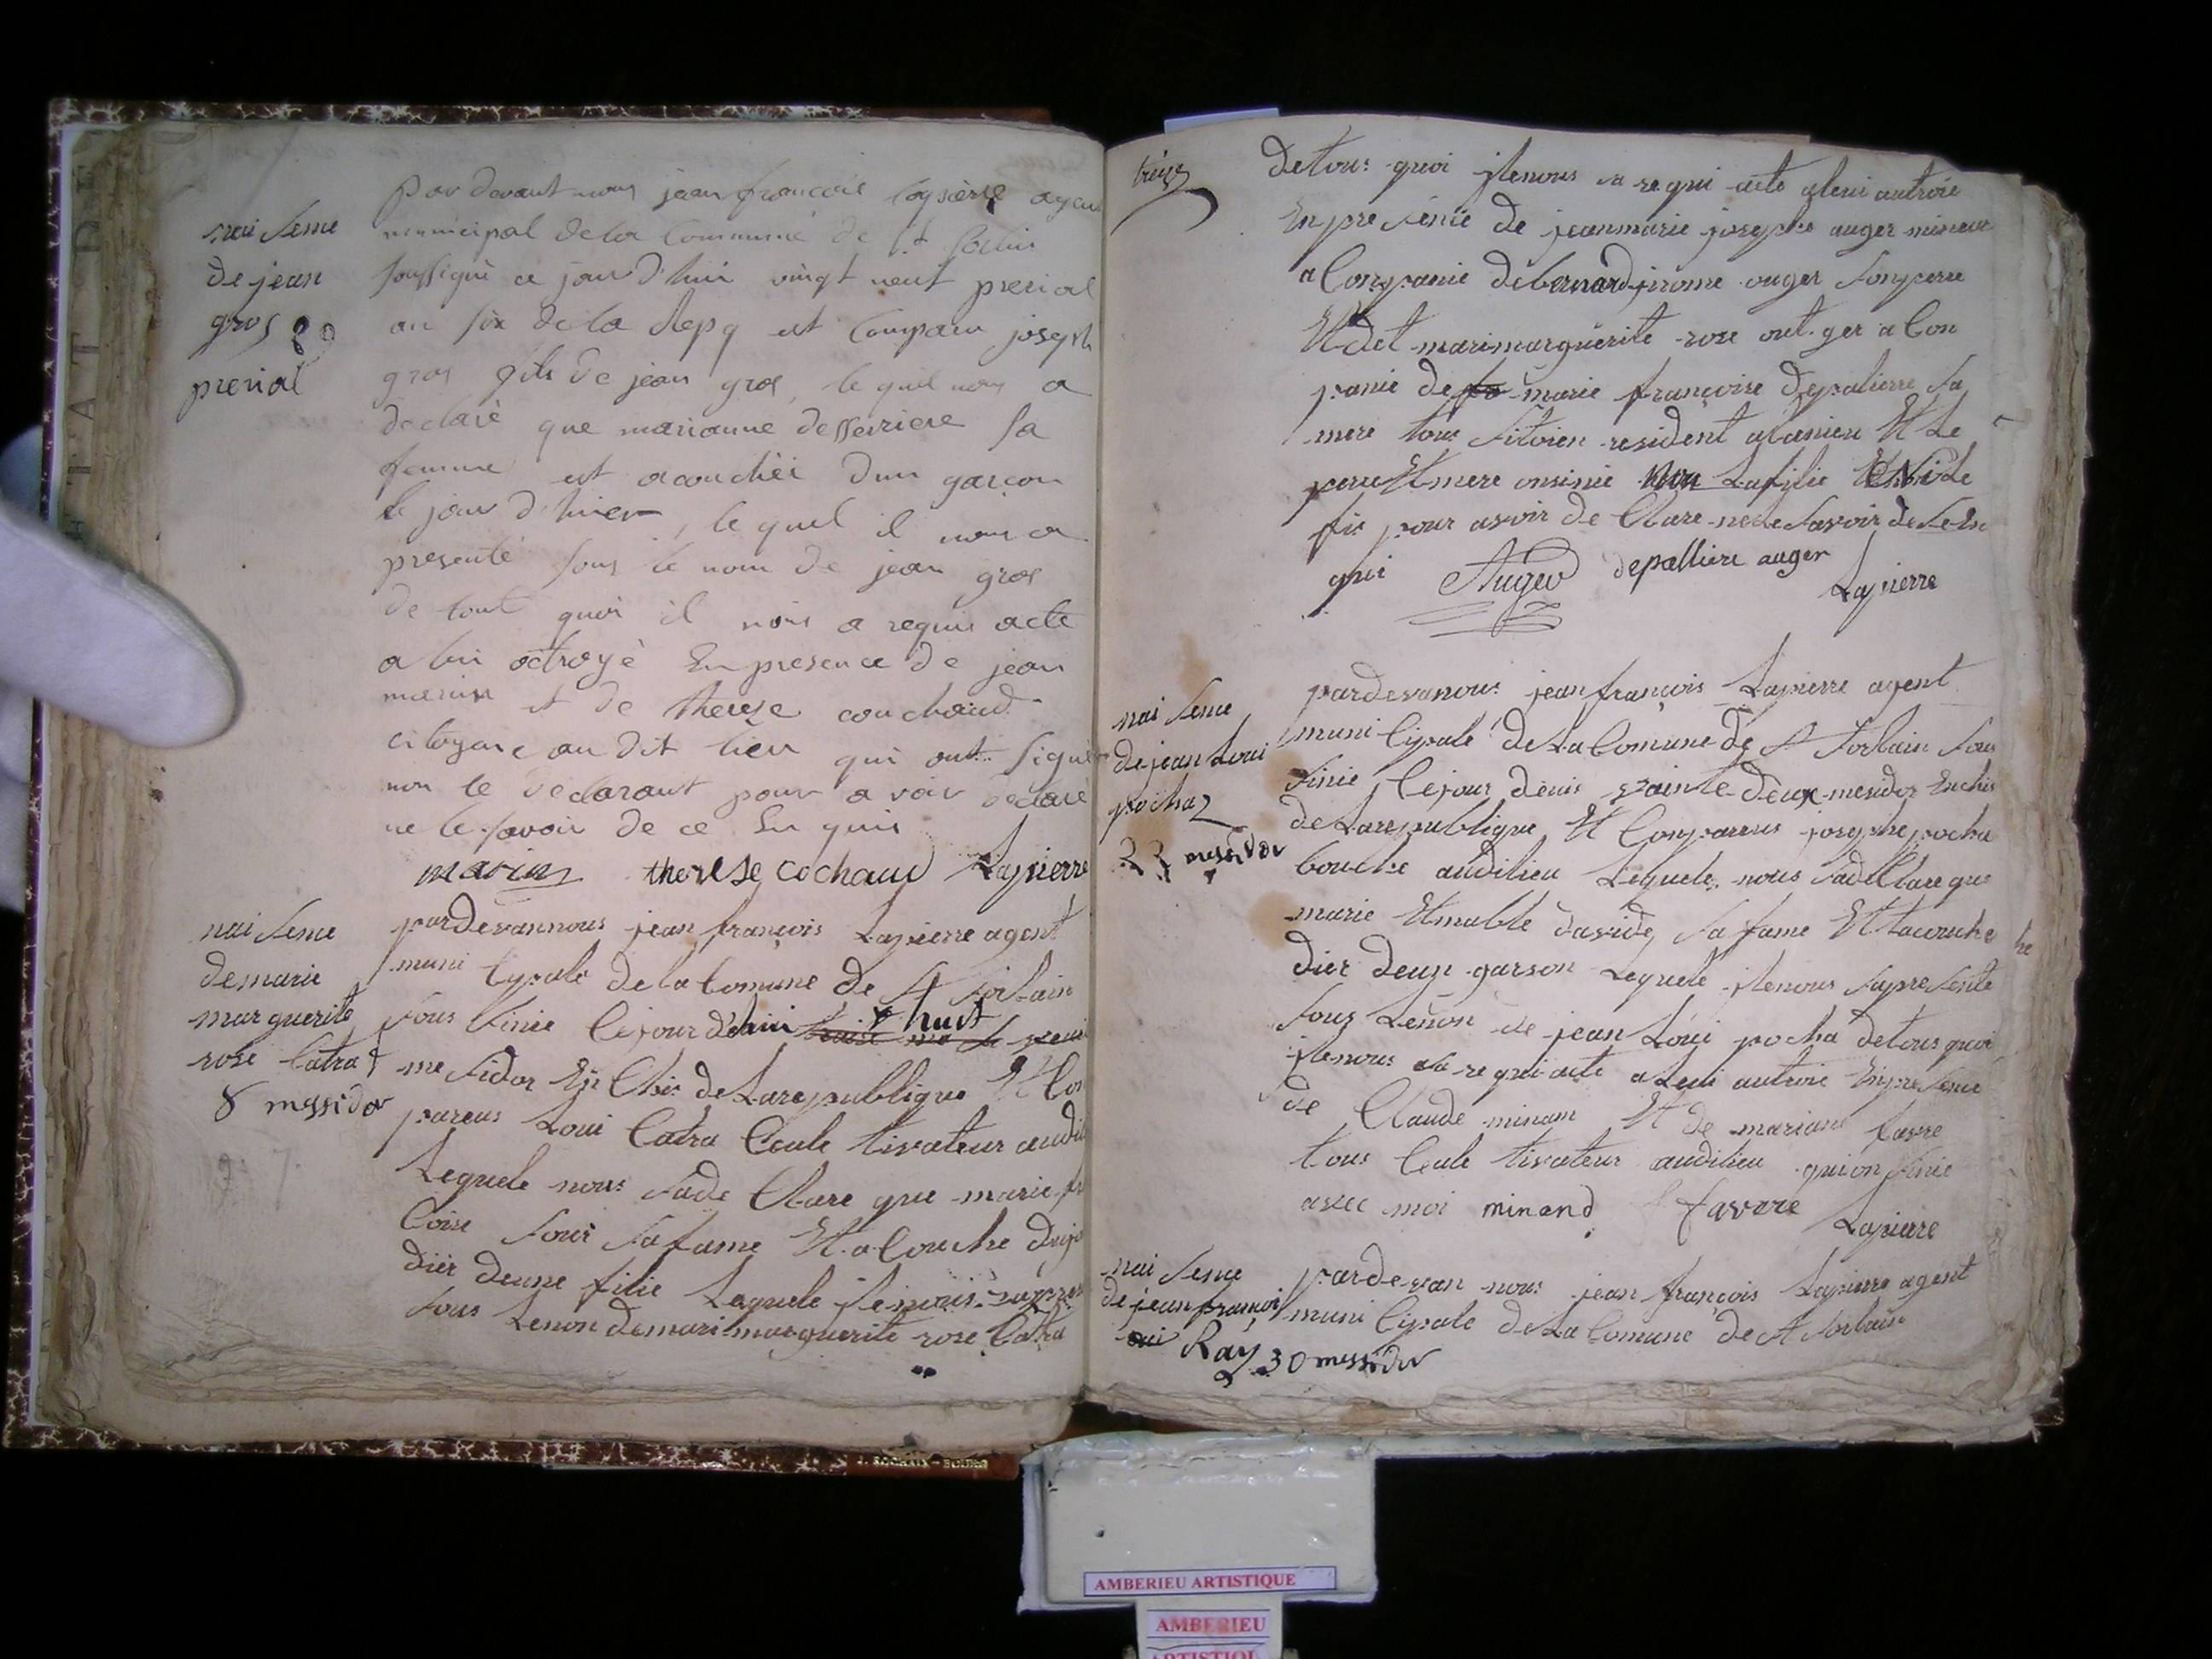 nai sence
de jean
gros 29
prerial
par devant nous jean françois lapierre agent
municipal de la Commune de St Sorlin
soussigné ce jour d'hui vingt neuf prerial
an six de la Repq est Comparu joseph
gros fils de jean gros, le quel nous a
declaré que marianne desserriere sa
femme est acouchéé dun garçon
le jour d'hier, le quel il nous a
presenté sous le nom de jean gros
de tout quoi il nous a requis acte
a lui octroyé En presence de jean
marin et de thereze couchaud
citoyens au dit lieu qui ont signé
non le declarant pour a voir declaré
ne le savoir de ce En quis
marin therese cochaud Lapierre
nai sence
de marie
marguerite
rose Catra
8 messidor
pardevannous jean françois Lapierre agent
muni Cypale de la Comune de St sorlain
sous sinie Cejour d'hui huit
me sidor En Chis de Larepublique Et Con
pareus Loui Catra Ceule tivateur audi
Lequele nous sade Clare que marie fr
Coise four sa fame Et a Couche
dier deune filie Laquele
sous Lenon demari marguerite rose Catra
treize
detous quoi ilenous a re qui acte aleui autroie
En pre sence de jeanmarie josephe auger mineur
a Conpanie de bernard jerome auger sonpere
Et det mari marguerite rose out ger a Con
panie de marie françoise depalierre sa
mere tous sitoien resident alanieu Et Le
pere Et mere onsinie non Lafilie Et Ni Le
fis pour avoir de Clare nele savoir de se En
qui Auger depalliere auger
Lapierre
nai sence
de jean Loui
pochaz
22 messidor
pardevanous jean françois Lapierre agent
muni Cipale de La Comune de St Sorlain sous
sinie Cejour deuis vainte deux mesidor En chis
de Larepublique Et Conpareus josephe pocha
bouche audilieu Lequele nous sadeClare que
marie Etmable davide sa fame Et tacouche
dier deun garson Lequele ilenous sapre sente
sous Lenon de jean Loui pocha detous quoi
ilenous a re qui acte a Leui autroie En pre sence
de Claude minan Et de mariane favre
tous Ceule tivateur audilieu quion sinie
avec moi minand favare Lapierre
nai sence
de jean françoi
Ray 30 messidor
parde van nous jean françois Lapierre agent
muni Cipale de La Comune de St sorlain
J. ROCHAIX - BOURG
AMBERIEU ARTISTIQUE
AMBERIEU